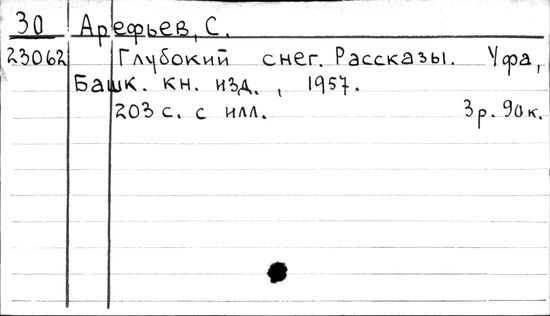 30 Арефьев, С.
23062 Глубокий снег. Рассказы. Уфа,
Башк. кн. изд., 1957.
203 с. с илл. 3р. 90к.